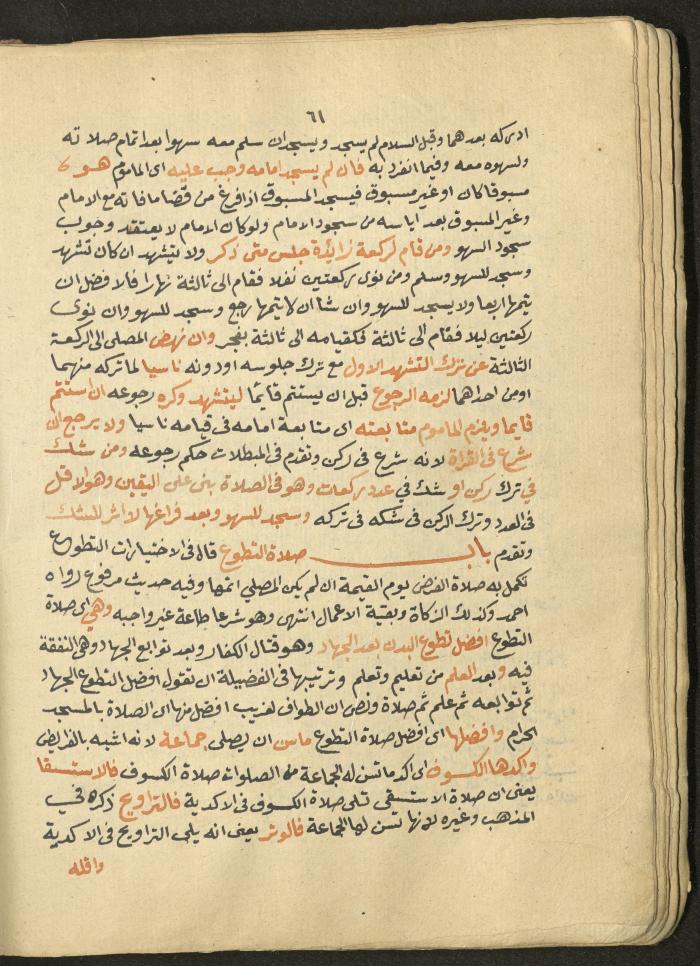 ٦١
ادركه بعدهما وقبل السلام لم يسجد ويسجد ان سلم معه سهوا بعد اتمام صلاته
ولسهوه معه وفيما انفرد به فان لم يسجد امامه وجب عليه اى الماموم هو
مسبوقا كان او غير مسبوق فيسجد المسبوق اذا فرغ من قضا ما فاته مع الامام
وغير المسبوق بعد اياسه من سجود الامام ولو كان الامام لا يعتقد وجوب
سجود السهو ومن قام لركعة زائدة جلس متى ذكر ولا يتشهد ان كان تشهد
وسجد للسهو وسلم ومن نوى ركعتين نفلا فقام الى ثالثة نهارا فالافضل ان
يتمها اربعا ولا يسجد للسهو وان شا ان لا يتمها رجع وسجد للسهو وان نوى
ركعتين ليلا فقام الى ثالثة فكقيامه الى ثالثة بفجر وان نهض المصلى الى الركعة
الثالثة عن ترك التشهد الاول مع ترك جلوسه او دونه ناسيا لما تركه منهما
او من احداهما لزمه الرجوع قبل ان يستتم قايما ليتشهد وكره رجوعه ان استتم
قايما ويلزم الماموم متابعته اى متابعة امامه فى قيامه ناسيا ولا يرجع ان
شرع فى القراة لانه شرع فى ركن وتقدم فى المبطلات حكم رجوعه ومن شك
في ترك ركن او شك في عدد ركعات وهو فى الصلاة بنى على اليقين وهو الاقل
فى العدد وترك الركن فى شكه فى تركه وسجد للسهو وبعد فراغها لا اثر للشك
وتقدم باب صلاة التطوع قال فى الاختيارات التطوع
تكمل به صلاة الفرض يوم القيمة ان لم يكن المصلي اتمها وفيه حديث مرفوع رواه
احمد وكذلك الزكاة وبقية الاعمال انتهى وهو شرعا طاعة غير واجبه وهي اى صلاة
التطوع افضل تطوع البدن بعد الجهاد وهو قتال الكفار وبعد توابع الجهاد وهى النفقة
فيه وبعد العلم من تعليم وتعلم وترتيبها فى الفضيلة ان تقول افضل التطوع الجهاد
ثم توابعه ثم علم ثم صلاة ونص ان الطواف لغريب افضل منها اى الصلاة بالمسجد
الحرام وافضلها اى افضل صلاة التطوع ما سن ان يصلى جماعة لانه اشبه بالفرايض
واكدها الكسوف اى اكد ما تسن له الجماعة من الصلوات صلاة الكسوف فالاستسقا
يعنى ان صلاة الاستسقى تلى صلاة الكسوف فى الاكدية فالتراويح ذكره في
المذهب وغيره لانها تسن لها الجماعة فالوتر يعنى انه يلى التراويح فى الاكدية
واقله